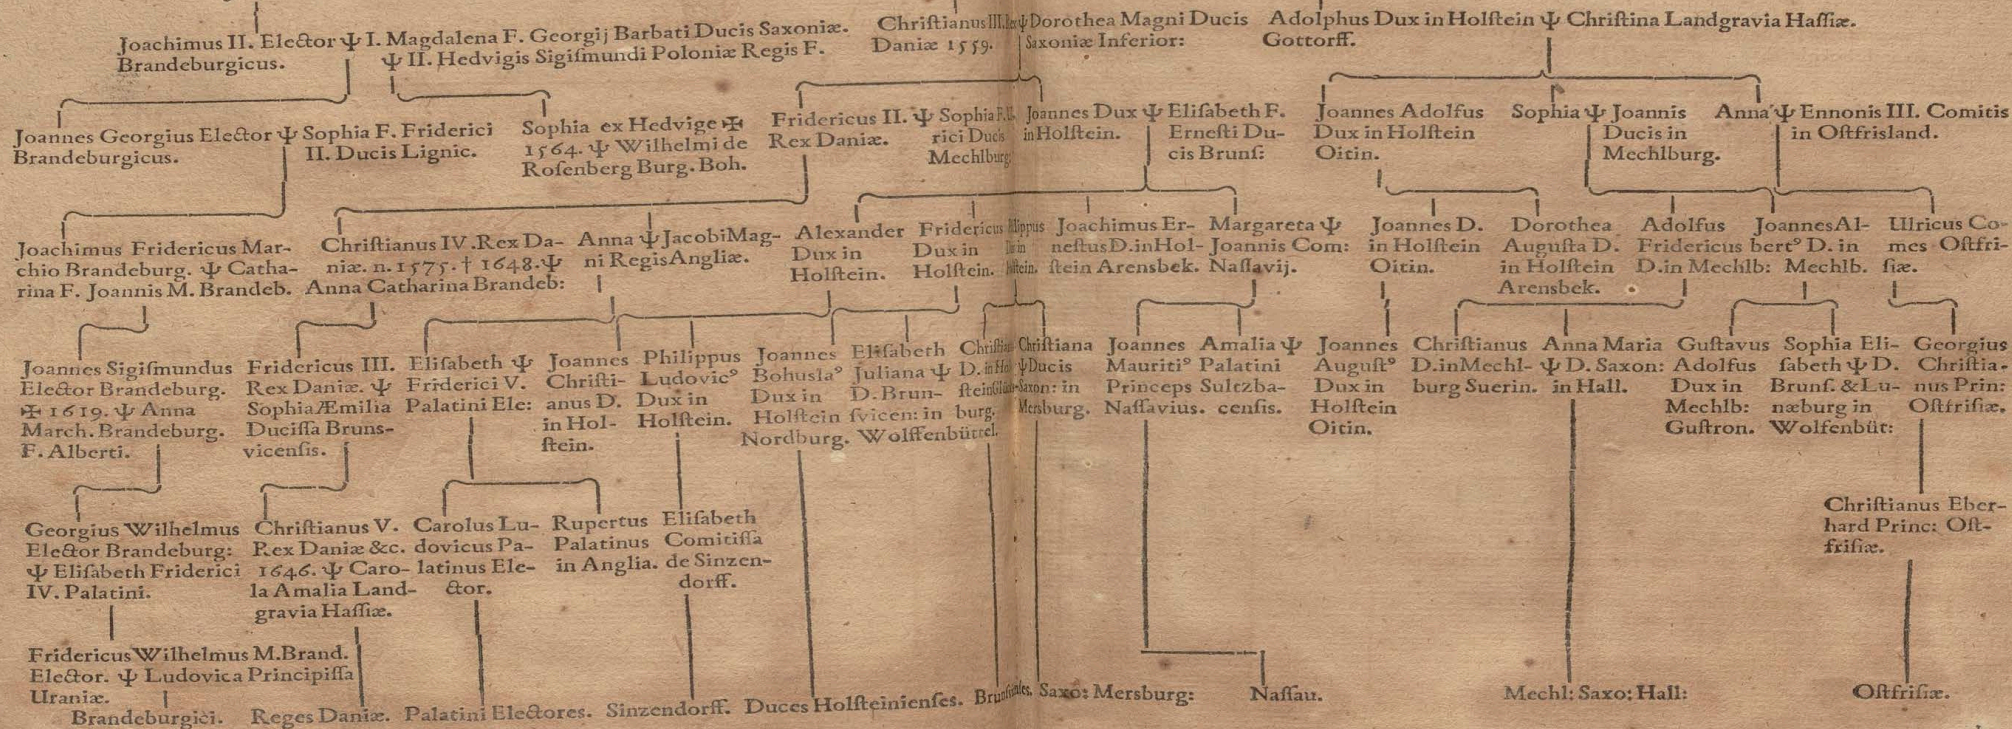 Joachimus II. Elector Ψ I. Magdalena F. Georgij Barbati Ducis Saxoniæ.
Brandeburgicus. Ψ II. Hedvigis Sigiſmundi Poloniæ Regis F.
Chriſtianus III. Rex Ψ Dorothea Magni Ducis
Daniæ 1559. Saxoniæ Inferior:
Adolphus Dux in Holſtein Ψ Chriſtina Landgravia Haſſiæ.
Gottorff.
Joannes Georgius Elector Ψ Sophia F. Friderici
Brandeburgicus. II. Ducis Lignic.
Sophia ex Hedvige ✠
1564. Ψ Wilhelmi de
Roſenberg Burg. Boh.
Fridericus II. Ψ Sophia
Rex Daniæ. rici Ducis
Mechlburg:
Joannes Dux Ψ Eliſabeth F.
in Holſtein. Erneſti Du-
cis Brunſ:
Joannes Adolfus
Dux in Holſtein
Oitin.
Sophia Ψ Joannis
Ducis in
Mechlburg.
Anna Ψ Ennonis III. Comitis
in Oſtfrisland.
Joachimus Fridericus Mar-
chio Brandeburg. Ψ Catha-
rina F. Joannis M. Brandeb.
Chriſtianus IV. Rex Da-
niæ. n. 1575. † 1648. Ψ
Anna Catharina Brandeb:
Anna Ψ Jacobi Mag-
ni Regis Angliæ.
Alexander
Dux in
Holſtein.
Fridericus
Dux in
Holſtein.
Joachimus Er-
neſtus D. in Hol-
ſtein Arensbek.
Margareta Ψ
Joannis Com:
Naſſavij.
Joannes D.
in Holſtein
Oitin.
Dorothea
Auguſta D.
in Holſtein
Arensbek.
Adolfus
Fridericus
D. in Mechlb:
Joannes Al-
bertꝰ D. in
Mechlb.
Ulricus Co-
mes Oſtfri-
ſiæ.
Joannes Sigiſmundus
Elector Brandeburg.
✠ 1619. Ψ Anna
March. Brandeburg.
F. Alberti.
Fridericus III.
Rex Daniæ. Ψ
Sophia Æmilia
Duciſſa Bruns-
vicenſis.
Eliſabeth Ψ
Friderici V.
Palatini Ele:
Joannes
Chriſti-
anus D.
in Hol-
ſtein.
Philippus
Ludovicꝰ
Dux in
Holſtein.
Joannes
Bohuslaꝰ
Dux in
Holſtein
Nordburg.
Eliſabeth
Juliana Ψ
D. Brun-
ſvicen: in
Wolffenbüttel.
D. in
ſtein
burg.
Chriſtiana
Ψ Ducis
Saxon: in
Mersburg.
Joannes
Mauritiꝰ
Princeps
Naſſavius.
Amalia Ψ
Palatini
Sultzba-
cenſis.
Joannes
Auguſtꝰ
Dux in
Holſtein
Oitin.
Chriſtianus
D. in Mechl-
burg Suerin.
Anna Maria
Ψ D. Saxon:
in Hall.
Guſtavus
Adolfus
Dux in
Mechlb:
Guſtron.
Sophia Eli-
ſabeth Ψ D.
Brunſ. & Lu-
næburg in
Wolfenbüt:
Georgius
Chriſtia-
nus Prin:
Oſtfriſiæ.
Georgius Wilhelmus
Elector Brandeburg:
Ψ Eliſabeth Friderici
IV. Palatini.
Chriſtianus V.
Rex Daniæ &c.
1646. Ψ Caro-
la Amalia Land-
gravia Haſſiæ.
Carolus Lu-
dovicus Pa-
latinus Ele-
ctor.
Rupertus
Palatinus
in Anglia.
Eliſabeth
Comitiſſa
de Sinzen-
dorff.
Chriſtianus Eber-
hard Princ: Oſt-
friſiæ.
Fridericus Wilhelmus M. Brand.
Elector. Ψ Ludovica Principiſſa
Uraniæ.
Brandeburgici. Reges Daniæ. Palatini Electores. Sinzendorff. Duces Holſteinienſes. Saxo: Mersburg: Naſſau. Mechl: Saxo: Hall: Oſtfriſiæ.